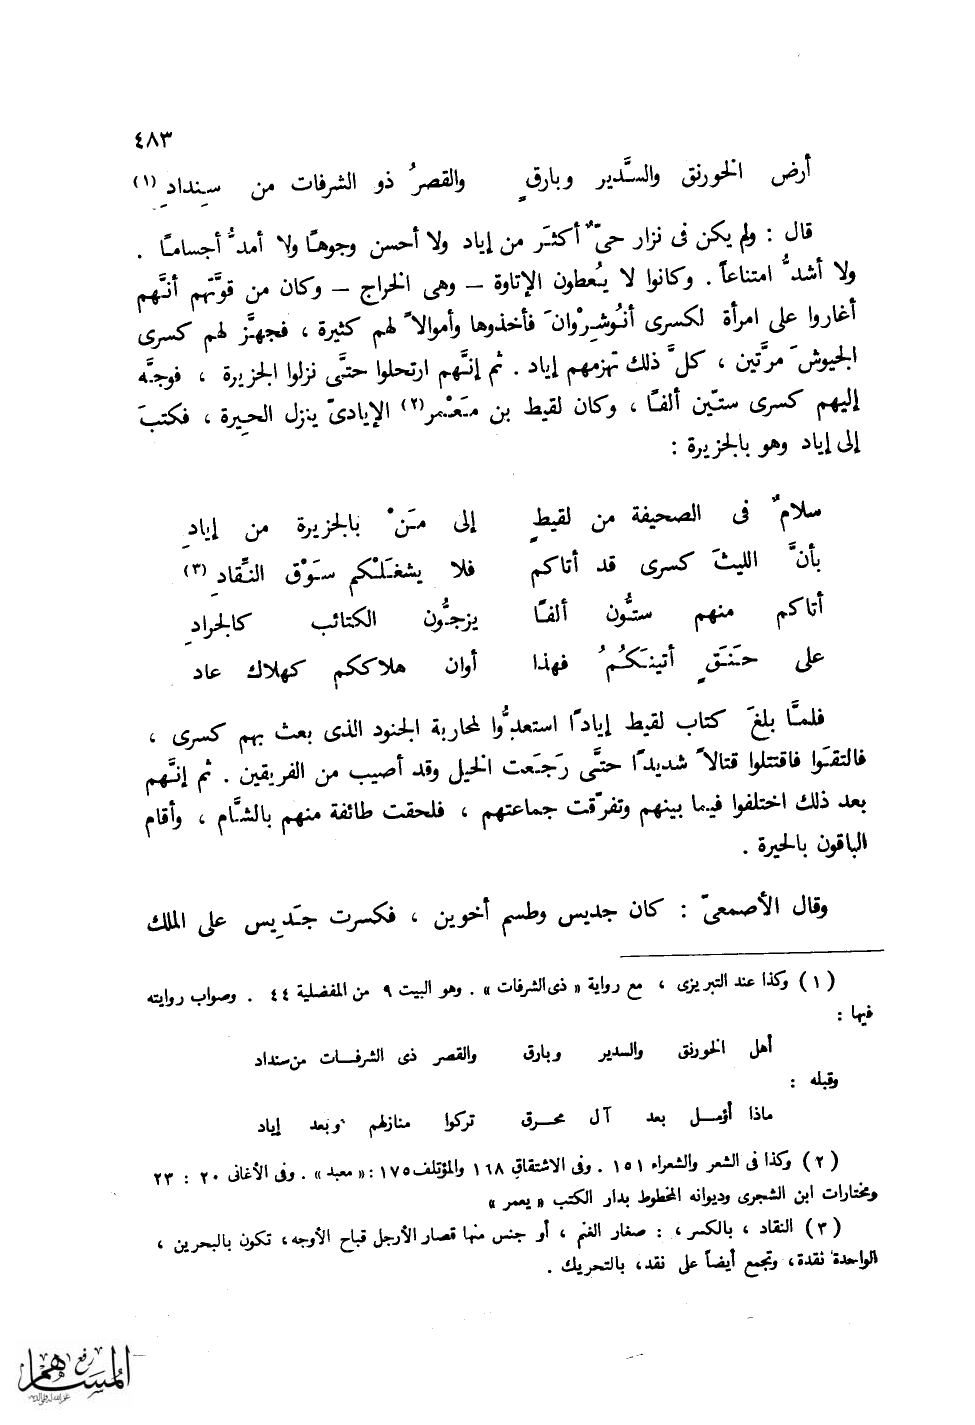 ٤٨٣
أرض الخورنق والسَّدير وبارقٍ والقصرُ ذو الشرفات من سِندادِ (١)
قال : ولم يكن فى نزار حىٌّ أكثَر من إياد ولا أحسن وجوهًا ولا أمدُّ أجسامًا .
ولا أشدُّ امتناعاً . وكانوا لا يُعطون الإتاوة – وهى الخراج – وكان من قوَّتهم أنَّهم
أغاروا على امرأة لكسرى أنُوشِرْوانَ فأخذوها وأموالاً لهم كثيرة ، فجهَّز لهم كسرى
الجيوشَ مرَّتين ، كلَّ ذلك تهزمهم إياد . ثم إنَّهم ارتحلوا حتَّى نزلوا الجزيرة ، فوجَّه
إليهم كسرى ستّين ألفًا ، وكان لقيط بن مَعْمر (٢) الإيادىّ ينزل الحِيرة ، فكتبَ
إلى إياد وهو بالجزيرة :
سلامٌ فى الصحيفة من لقيطٍ إلى مَنْ بالجزيرة من إيادِ
بأنَّ الليثَ كسرى قد أتاكم فلا يشغَلْكم سَوْق النِّقادِ (٣)
أتاكم منهم ستُّون ألفًا يزجُّون الكتائب كالجرادِ
على حَنَقٍ أتينَكُمُ فهذا أوان هلاككم كهلاك عاد
فلمَّا بلغَ كتاب لقيط إيادًا استعدُّوا لمحاربة الجنود الذى بعث بهم كسرى ،
فالتقَوا فاقتتلوا قتالاً شديدًا حتَّى رَجَعت الخيل وقد أصيب من الفريقين . ثم إنَّهم
بعد ذلك اختلفوا فيما بينهم وتفرّقت جماعتهم ، فلحقت طائفة منهم بالشَّام ، وأقام
الباقون بالحيرة .
وقال الأصمعىّ : كان جديس وطسم أخوين ، فكسرت جَدِيس على الملك
(١) وكذا عند التبريزى ، مع رواية « ذى الشرفات » . وهو البيت ٩ من المفضلية ٤٤ . وصواب روايته
فيها :
أهل الخورنق والسدير وبارق والقصر ذى الشرفات من سنداد
وقبله :
ماذا أؤمل بعد آل محرق تركوا منازلهم وبعد إياد
(٢) وكذا فى الشعر والشعراء ١٥١ . وفى الاشتقاق ١٦٨ والمؤتلف ١٧٥ : « معبد » . وفى الأغانى ٢٠ : ٢٣
ومختارات ابن الشجرى وديوانه المخطوط بدار الكتب « يعمر »
(٣) النقاد ، بالكسر ، : صغار الغنم ، أو جنس منها قصار الأرجل قباح الأوجه، تكون بالبحرين ،
الواحدة نقدة، وتجمع أيضاً على نقد، بالتحريك .